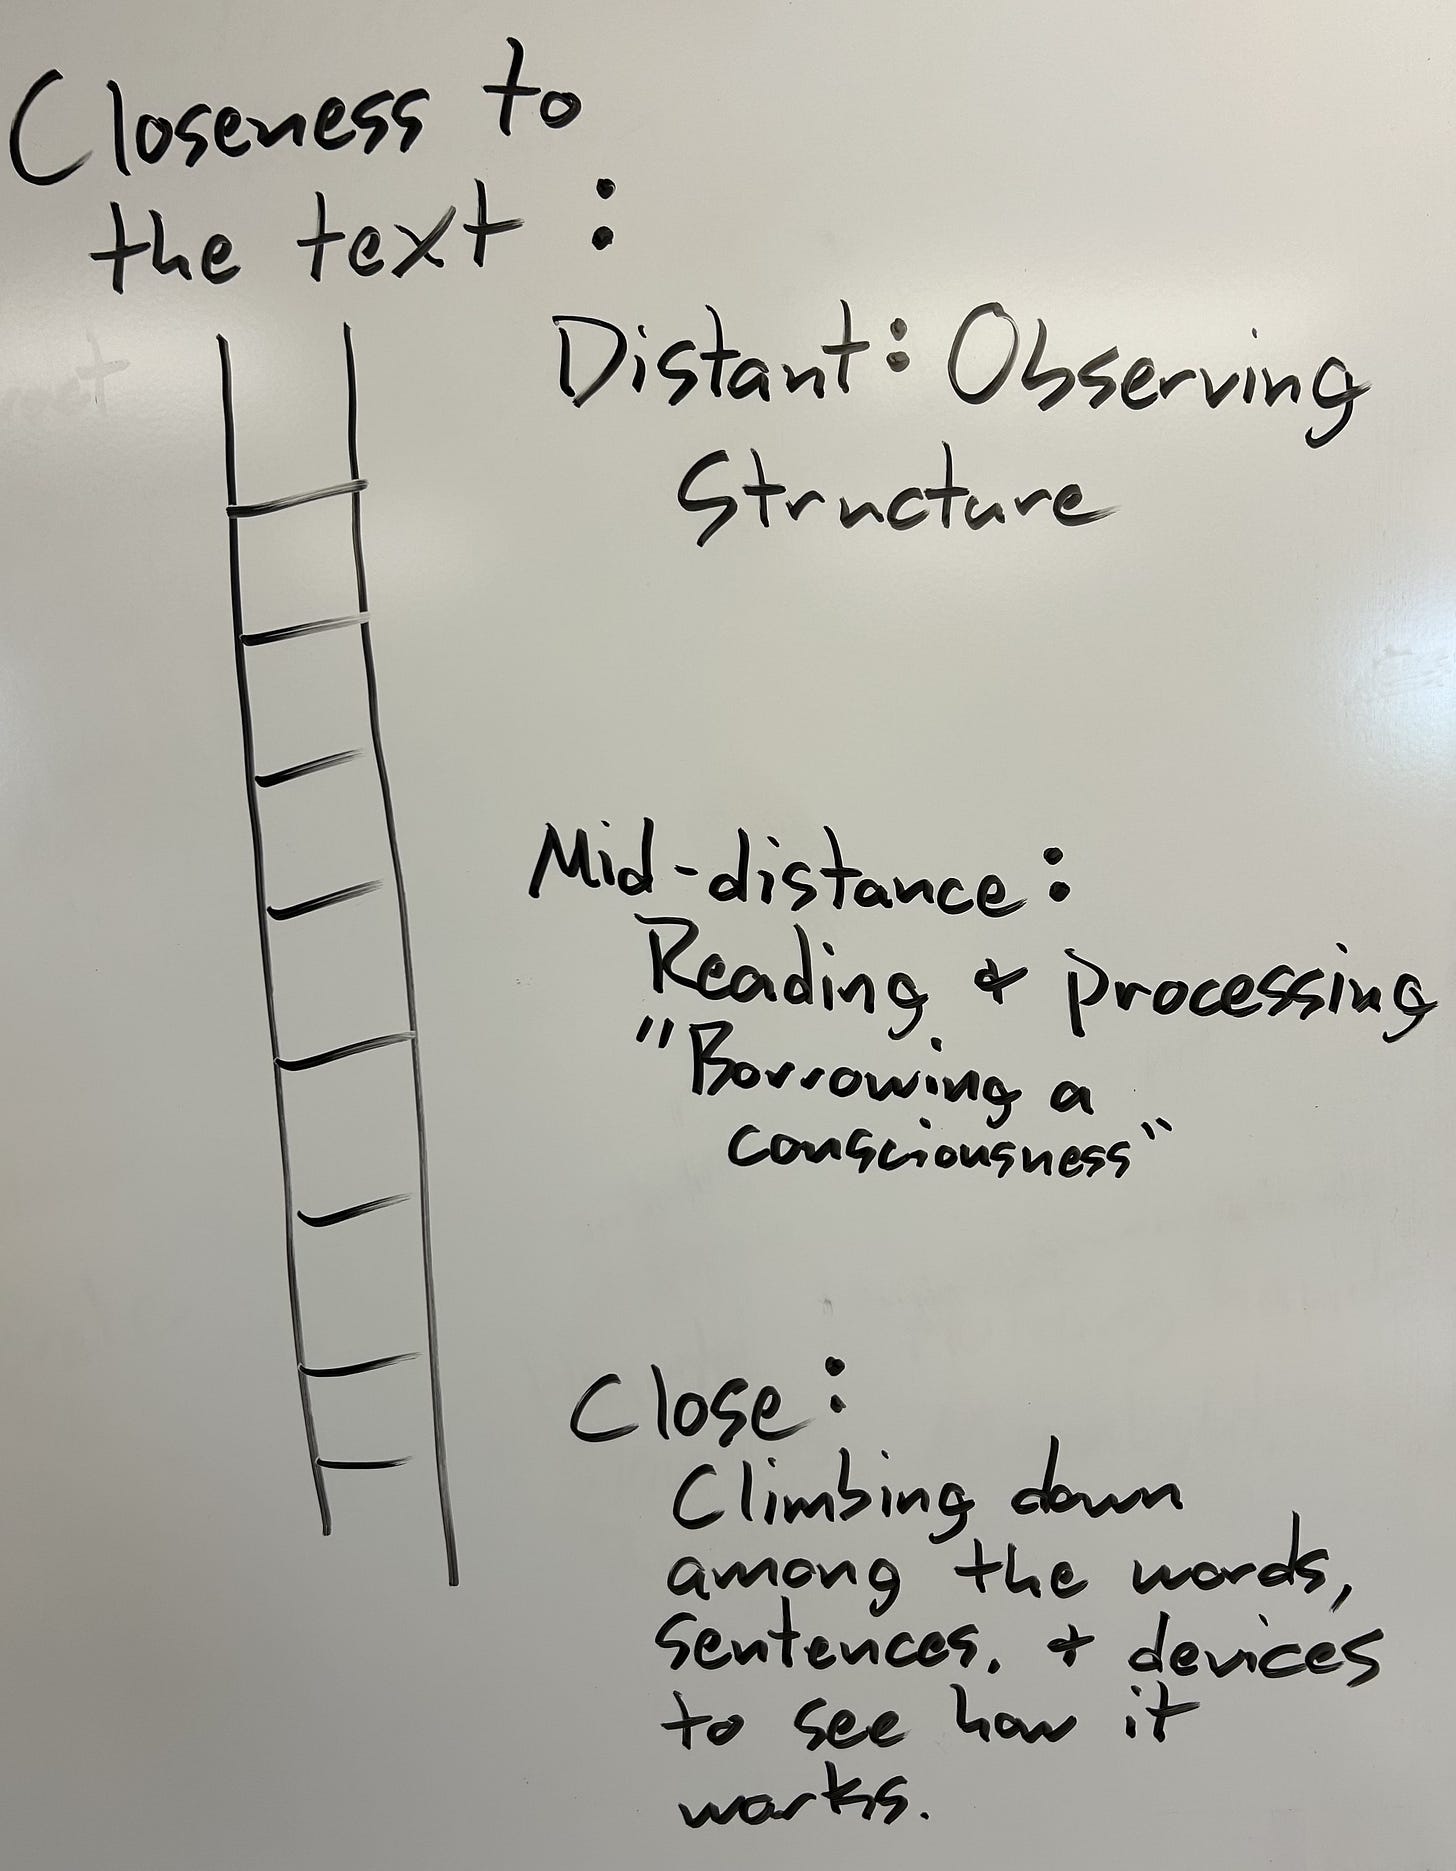 Closeness to
the text :
Distant: Observing
Structure
Mid-distance:
Reading & processing
"Borrowing a
consciousness"
Close:
Climbing down
among the words,
sentences. & devices
to see how it
works.